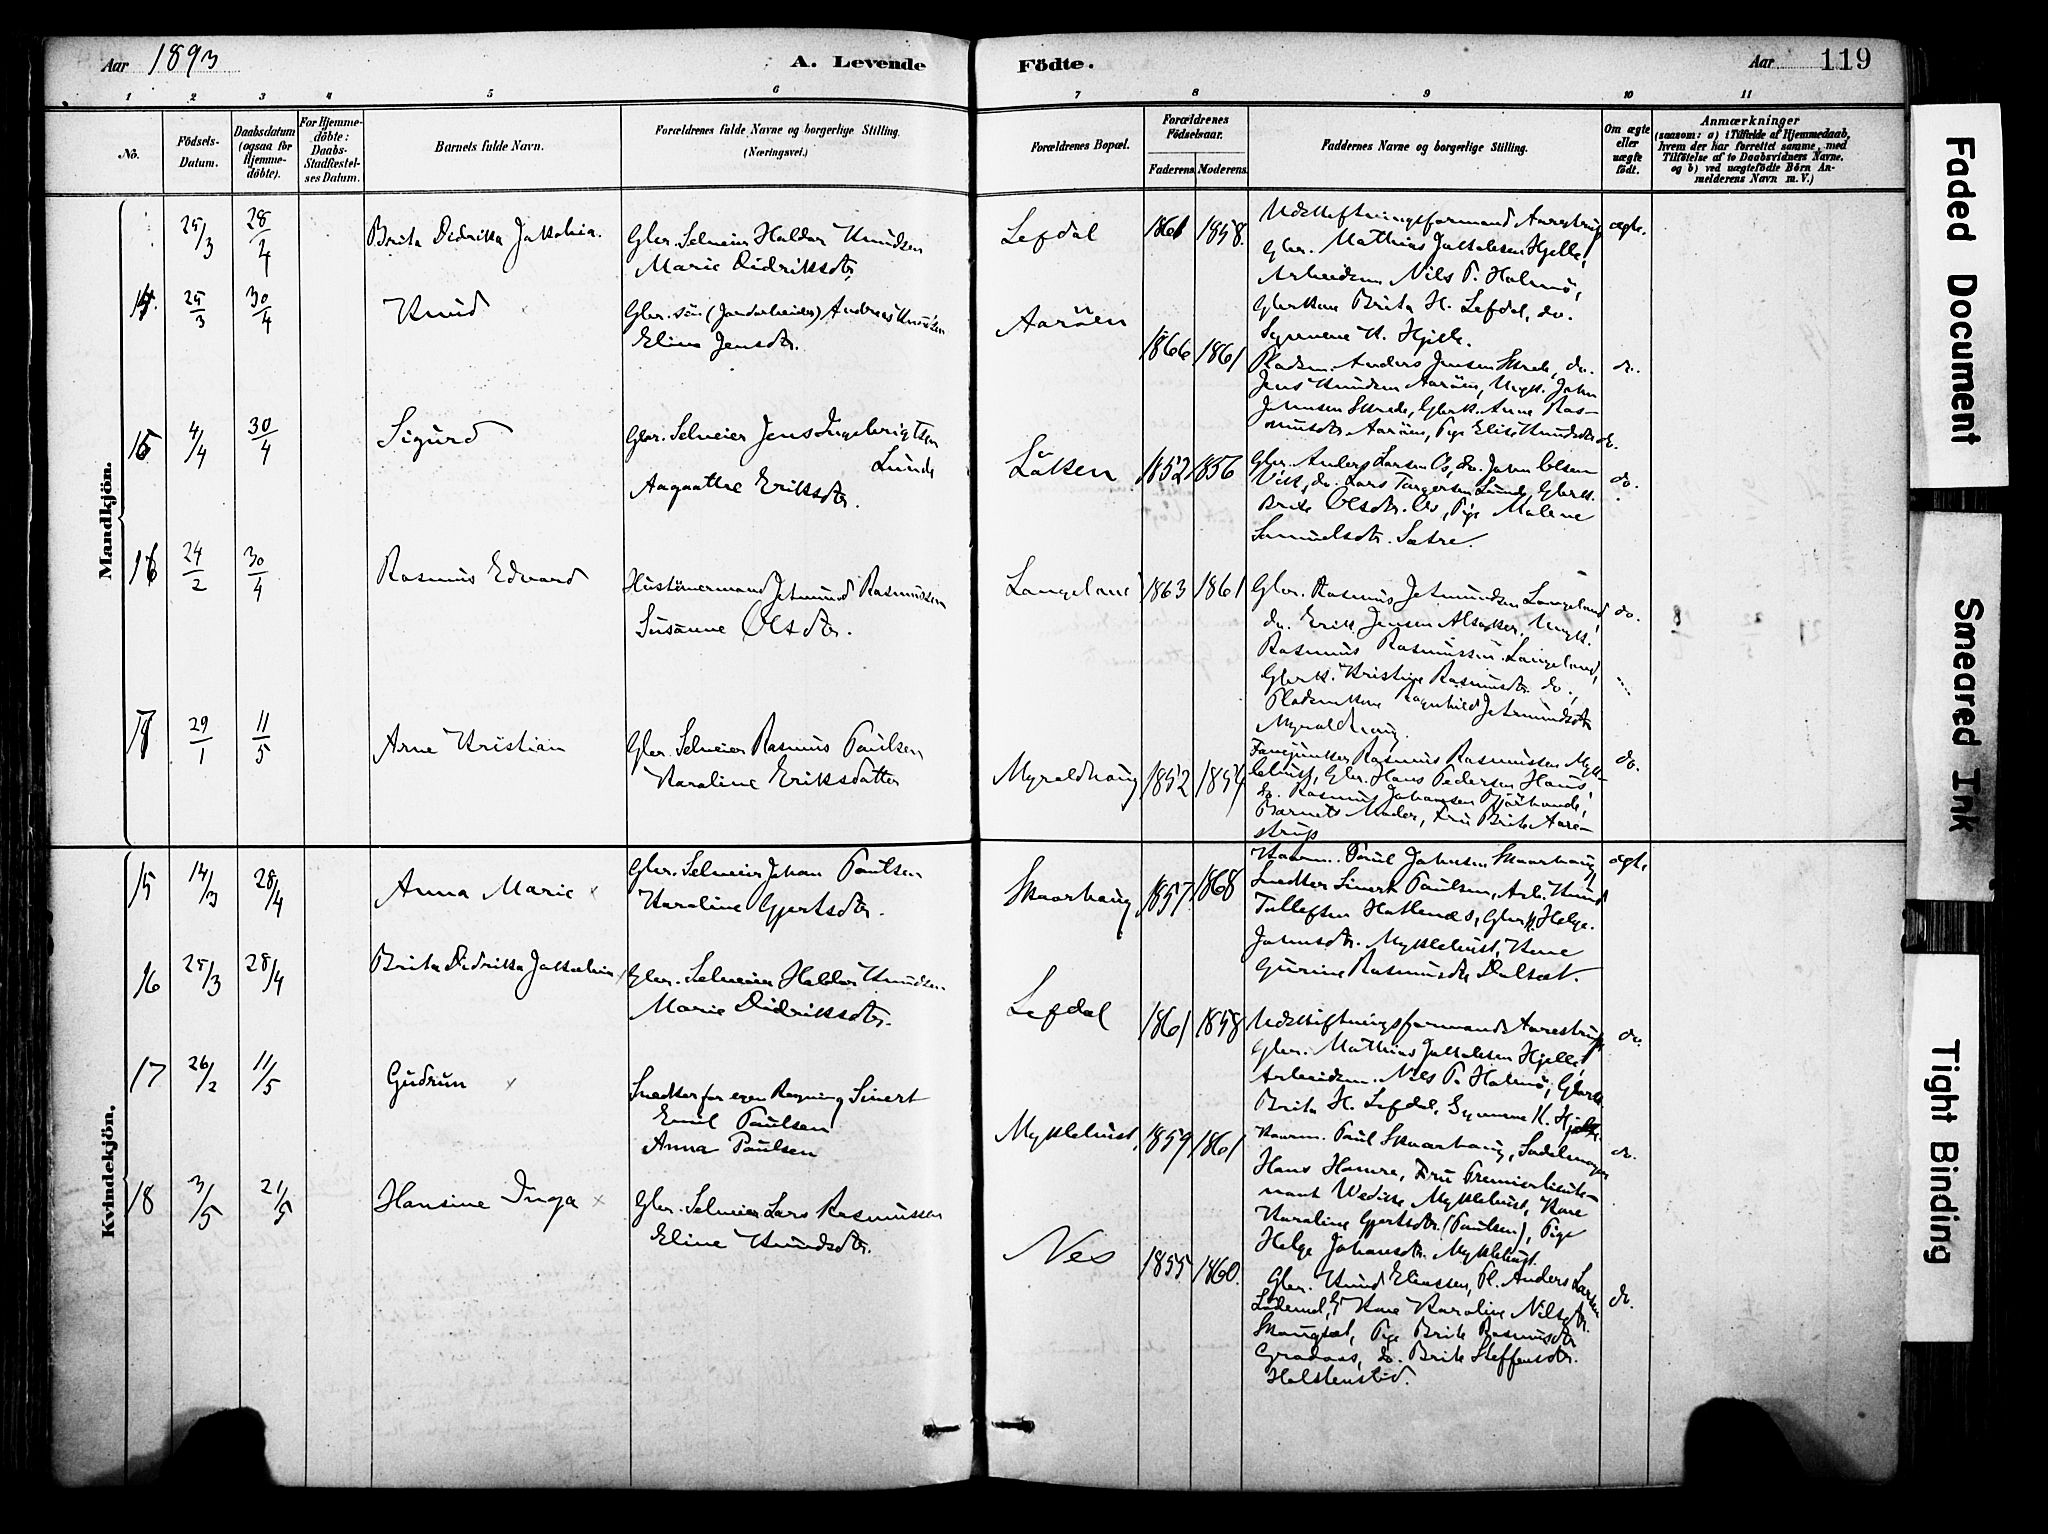 Aar 1893
A. Levende
Födte.
Aar
119
1 2 3 4 5 6 7 8 9 10 11
No.
Födsels-
Datum.
Daabsdatum
(ogsaa for
Hjemme-
döbte).
For Hjemme-
döbte:
Daabs-
Stadfæstel-
ses Datum.
Barnets fulde Navn.
Forældrenes fulde Navne og borgerlige Stilling.
(Næringsvei.)
Forældrenes Bopæl.
Forældrenes
Födselsaar.
Faderens Moderens
Faddernes Navne og borgerlige Stilling.
Om ægte
eller
uægte
födt.
Anmærkninger
(saasom: a) i Tilfælde af Hjemmedaab,
hvem der har forrettet samme, med
Tilföielse af to Daabsvidners Navne.
og b) ved uægtefödte Börn An-
melderens Navn m. V.)
Mandkjön.
25/3 28/4 Brita Didrikka Jakobia.
Gbr. Selveier Haldor Knudsen
Marie Didriksdtr.
Lefdal 1861 1858.
Udskiftningsformand Aarestrup
Gbr. Mathias Jakobsen Hjelle,
Arbeidsm. Nils P. Holmö,
Gbrkone Brita H. Lefdal, do.
K. Hjelle.
ægte.
14. 25/3 30/4 Knud
Gbr. sön (Jordarbeider) Andreas Knudsen
Eline Jensdtr.
Aaröen 1866 1861
Pladsm. Anders Jensen Skrede, do.
Jens Knudsen Aaröen, Ungk. John
Johnsen Skrede, Gbrk. Anne Ras-
musdtr Aaröen, Pige Elise Knudsdtr do.
do.
15 4/4 30/4 Sigurd
Gbr. Selveier Jens Ingebrigtsen
Lunde
Aagaathe Eriksdtr.
Löken 1852 1856
Gbr. Anders Larsen Os, do. John Olsen
Vik, do. Lars Torgersen Lunde, Gbrk.
Brite Olsdtr. Os, Pige Malene
Samuelsdtr. Sætre.
do.
16 24/2 30/4 Rasmus Edvard
Hustömermand Jetmund Rasmussen
Susanne Olsdtr.
Langeland 1863 1861
Gbr. Rasmus Jetmundsen Langeland
do. Erik Jensen Alsaker. Ungk.
Rasmus Rasmussen Langeland,
Gbrk. Kristine Rasmusdtr. do.,
Pladsmkone Ragnhild Jetmundsdtr
Myroldhaug.
do.
17 29/1 11/5 Arne Kristian
Gbr. Selveier Rasmus Paulsen
Karoline Eriksdatter
Myroldhaug 1852 1854
Fanejunker Rasmus Rasmussen Mykle-
bust, Gbr. Hans Pedersen Haus,
do. Rasmus Johansen
Barnets Moder, Fru Brite Aare-
strup
do.
Kvindekjön.
15 14/3 28/4 Anna Marie x
Gbr. Selveier Johan Paulsen
Karoline Gjertsdtr.
Skaarhaug 1857 1868
Kaarm. Paul Johnsen Skaarhaug,
Snedker Sivert Paulsen, Arb. Knud
Tollefsen Hatlenes, Gbrk. Helge
Johnsdtr. Myklebust, Kone
Gurine Rasmusdtr Dalset.
ægte.
16 25/3 28/4 Brita Didrikka Jakobia x
Gbr. Selveier Haldor Knudsen
Marie Didriksdtr.
Lefdal 1861 1858
Udskiftningsformand Aarestrup
Gbr. Mathias Jakobsen Hjelle,
Arbeidsm. Nils P. Holmö, Gbrk
Brita H. Lefdal, K. Hjelle.
do.
17 26/2 11/5 Gudrun x
Snedker for egen Regning Sivert
Emil Paulsen
Anna Paulsen
Myklebust, 1859 1861
Kaarm. Paul Skaarhaug, Sadelmager
Hans Hamre, Fru Premierlieute-
nant Myklebust, Kone
Karoline Gjertsdtr. (Paulsen), Pige
Helge Johansdtr. Myklebust.
do.
18 3/5 21/5 Hansine Inga x
Gbr. Selveier Lars Rasmussen
Eline Knudsdtr.
Nes 1855 1860.
Gbr. Knud Eliassen, Pl. Anders Larsen
Kone Karoline Nilsdtr.
Skaugset, Pige Brite Rasmusdtr
do. Brite Steffensdtr.
do.
Faded Document
Smeared Ink
Tight Binding